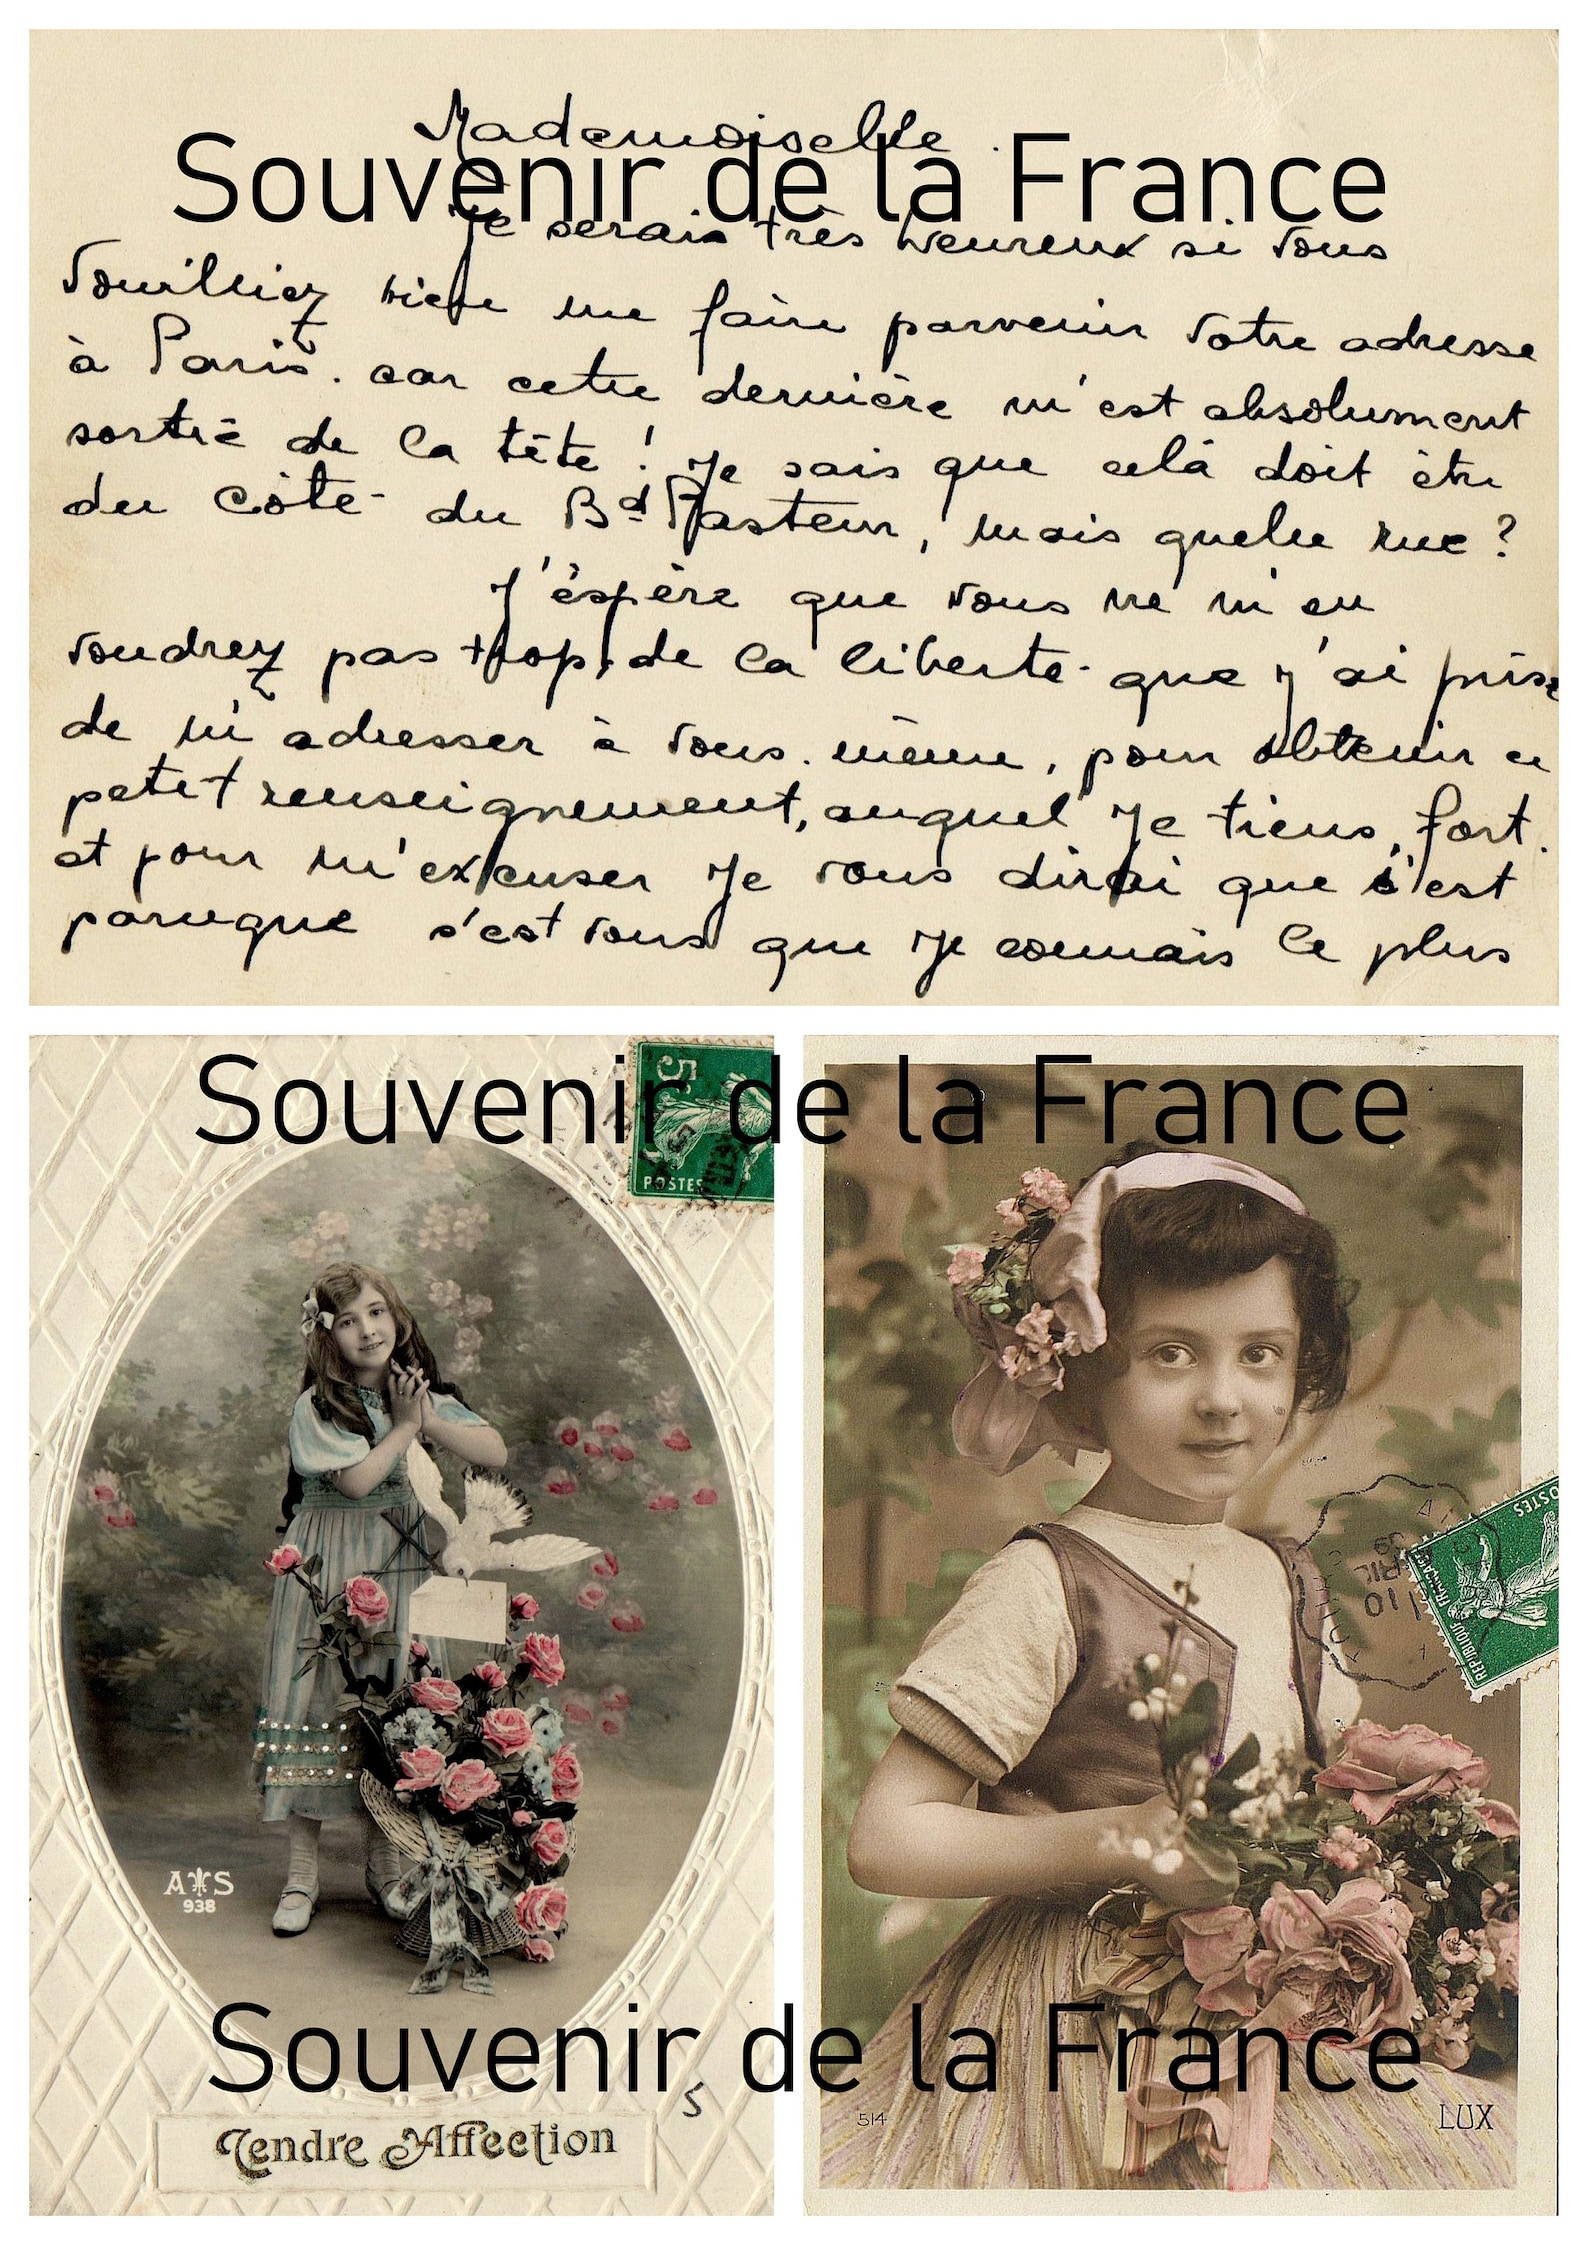 Mademoiselle.
Souvenir de la France
Je serais très heureux si vous
vouilliez bien me faire parvenir votre adresse
à Paris. car cette dernière m'est absolument
sortie de la tête ! Je sais que celà doit être
du côté du Bd Pasteur, mais quelle rue ?
J'éspère que vous ne m'en
voudrez pas trop, de la liberté que j'ai prise
de m'adresser à vous. même, pour obtenir ce
petit renseignement, auquel je tiens, fort.
et pour m'excuser Je vous dirai que s'est
parceque s'est vous que Je connais le plus
Souvenir de la France
5
POSTES
POSTES
RÉPUBLIQUE
A S
938
Souvenir de la France
5
Tendre Affection
514
LUX